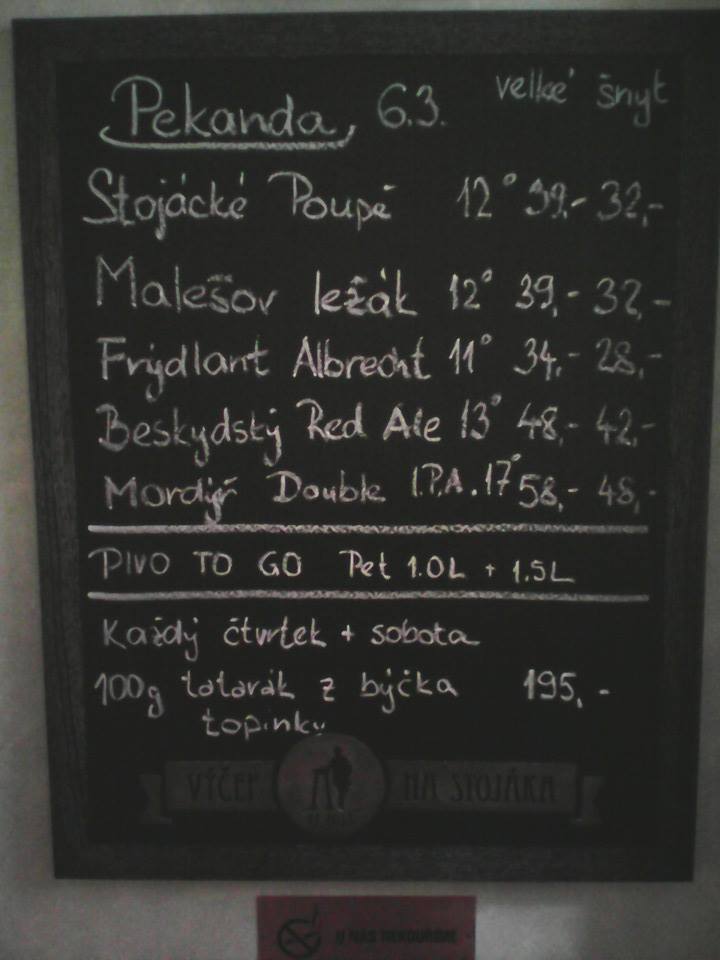 Pekanda, 6.3. velké šnyt
Stojácké Poupě 12° 39,- 32,-
Malešov ležák 12° 39,- 32,-
Frýdlant Albrecht 11° 34,- 28,-
Beskydský Red Ale 13° 48,- 42,-
Mordýř Double I.P.A. 17° 58,- 48,-
PIVO TO GO Pet 1.0L + 1.5L
Každý čtvrtek + sobota
100g tatarák z býčka 195,-
topinky
VÝČEP NA STOJÁKA
U NÁS NEKOUŘÍME